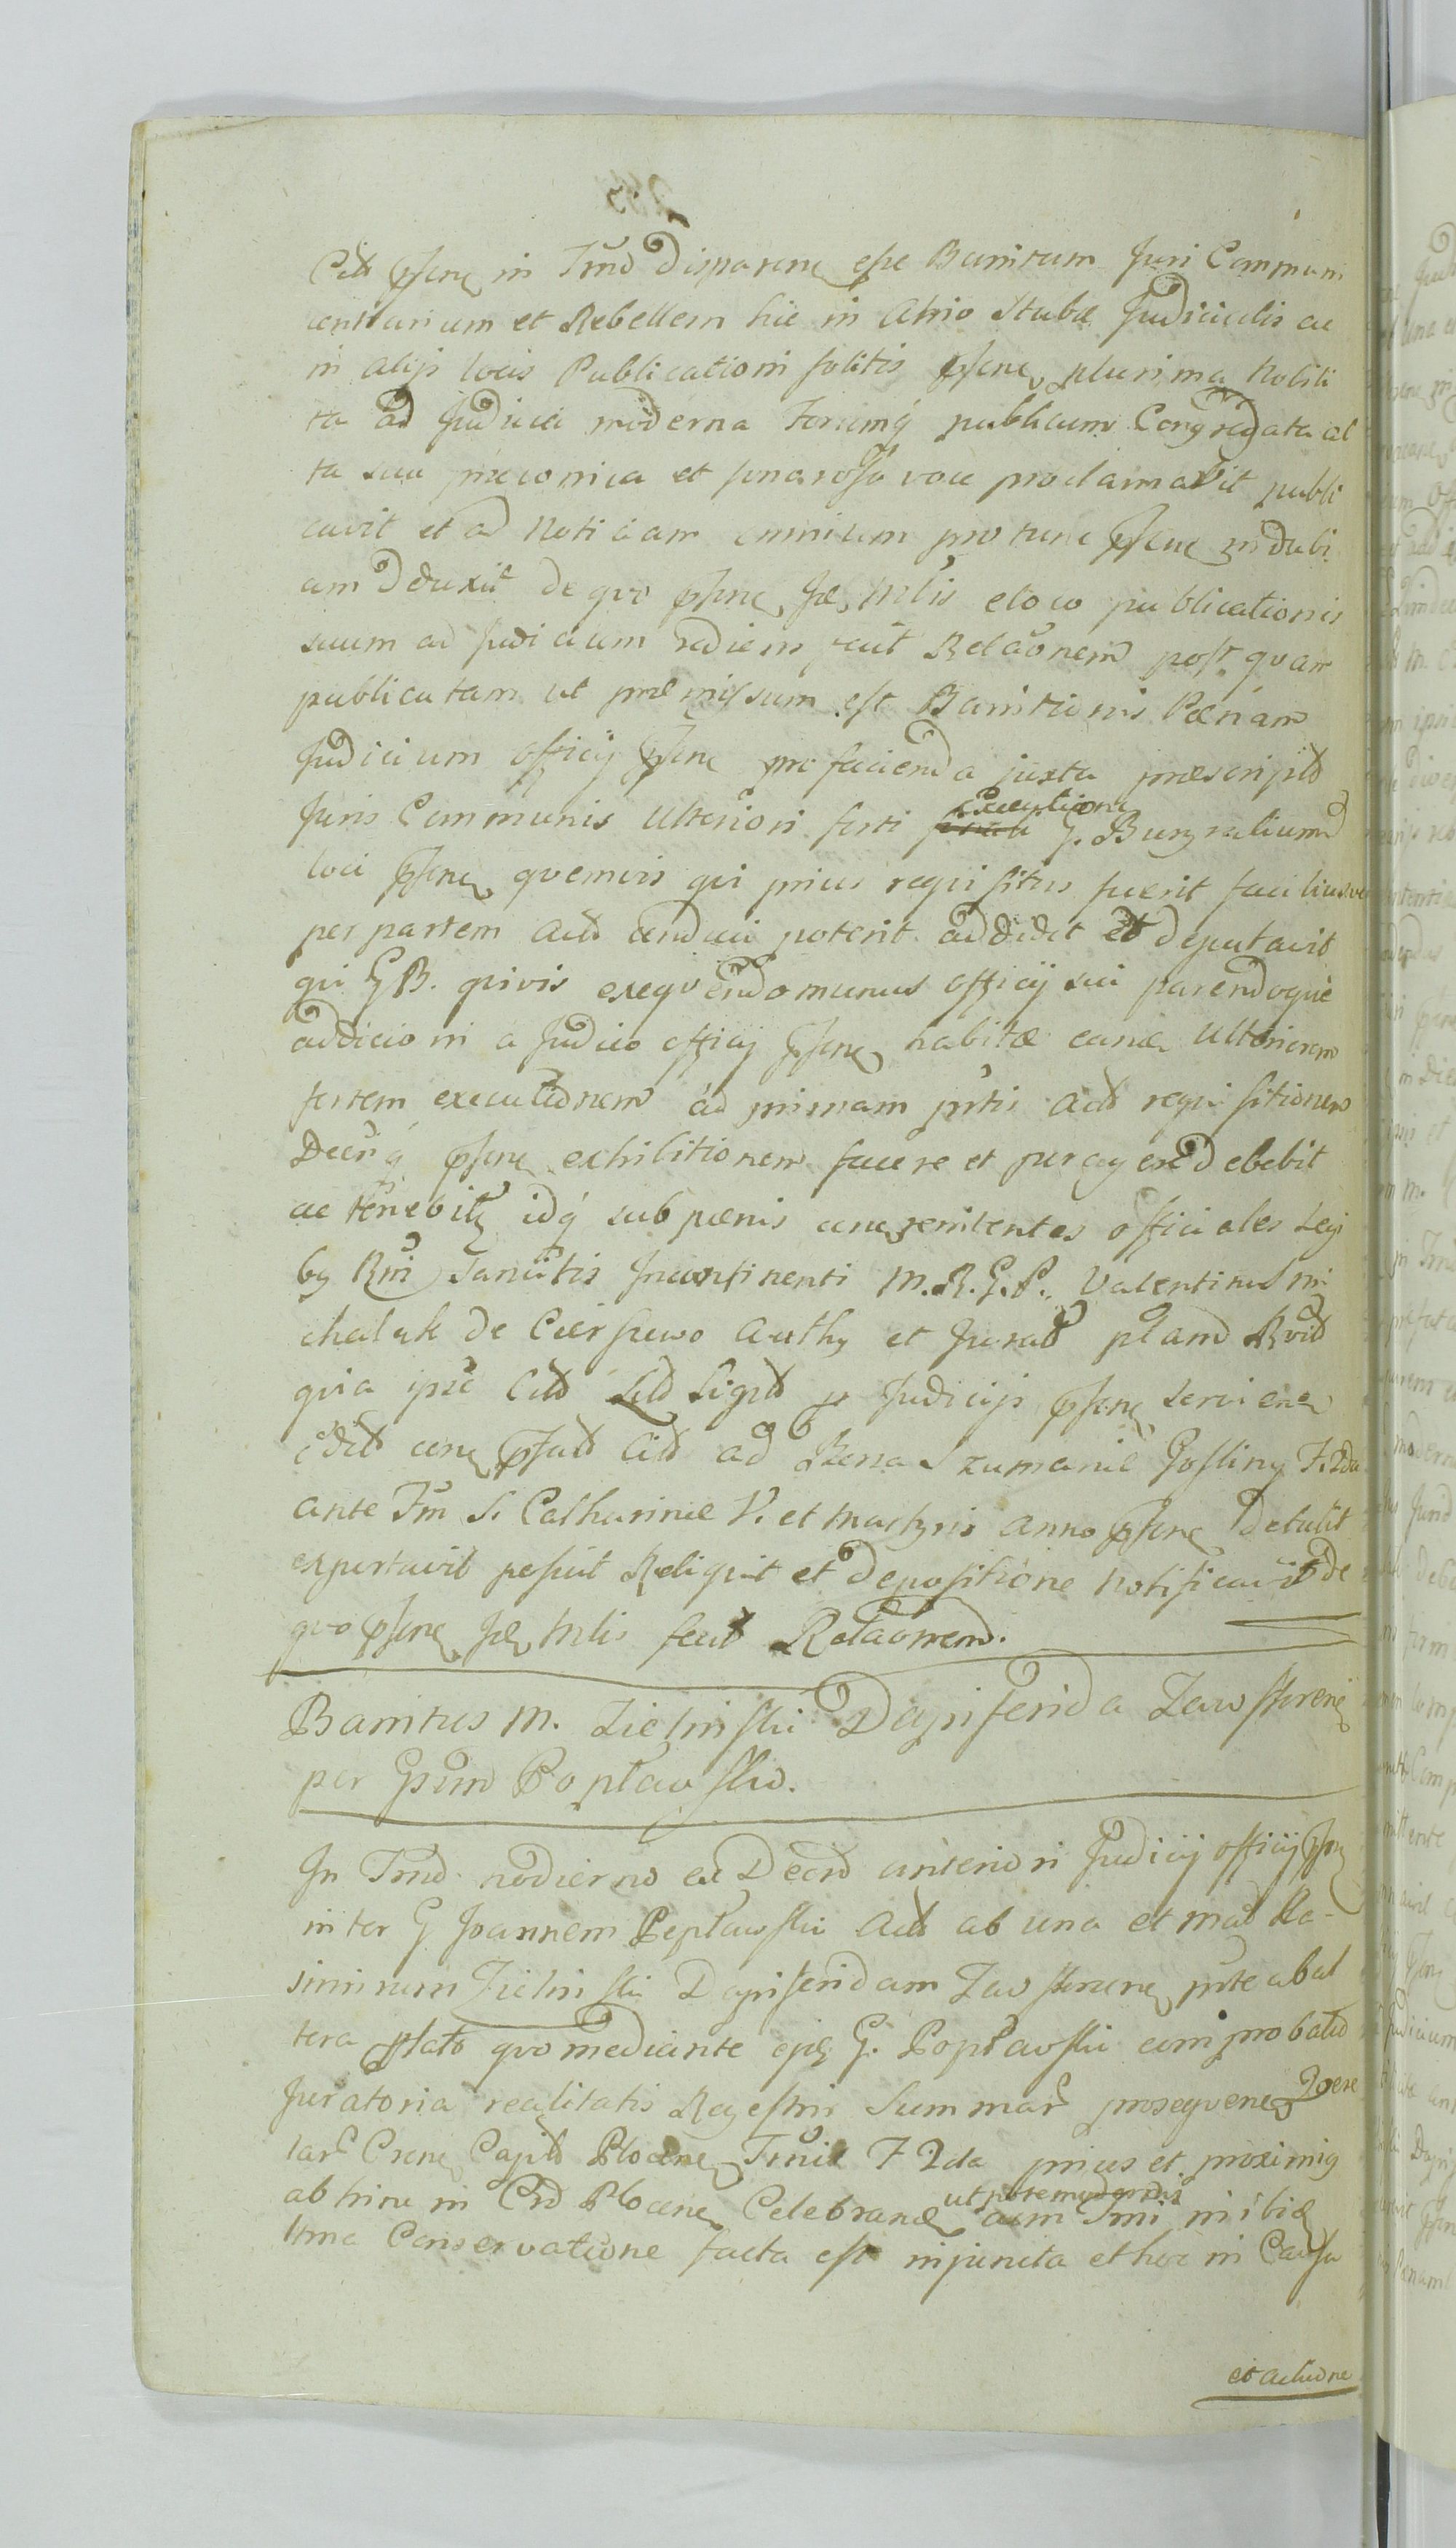 Citt pṡene in Trno disparene esse Banitum Juri Communi
contrarium et Rebellem hic in Atrio Stubæ Judicialis ac
in alijs locis Publicationi solitis pṡene plurima Nobili
ta ad Judicia moderna Forumq publicum Congregata al
ta sua præconica et sonarosa voce proclamavit publi
cavit et ad Notitiam omnium pro tunc pṡene indubi
am deduxit de quo pṡene Jas Mlis et loco publicationis
suum ad Judicium rediens fecit Relaõnem post quam
publicatam ut præmissum est Banitionis Pœnam
Judicium officij pṡene pro facienda juxta præscript
Juris Communis Ulteriori forti executione G. Burgrabium
loci pṡene quemvis qui prius requisitus fuerit faciliusve
per partem Act conduci poterit addidit et deputavit
qui G B. quivis exequendo munus officij sui parendoque
addicioni a Judicio officij pṡene habitæ eama Ulteriorem
fortem executionem ad primam prtis Act requisitionem
Decriq pṡene exhibitionem facere et peragere debebit
ac tenebitz idq sub pœnis cone renitentes officiales Legi
bg Rni sancitis Incontinenti M.R.G.P. Valentinus Mi
chalak de Cierpiewo Authg et Jurat plam Rvit
quia ipse Citt Litt Sigilt p Judicijs pṡene serviene
edit cone pṡat Citt ad Bona Szumanie Gosliny F. 2da
ante Fm S. Catharinæ V. et Martyris Anno pṡene detulit
exportavit posuit Reliquit et depositione notificavit de
quo pṡene Jas Mlis fecit Relaõnem.
Banitus M. Zielinski Dapiferida Zawskrenẽ
per Gsum Popławskio.
In Trno hodierno ex Decro anteriori Judicij officij pṡene
inter G Joannem Popławski Act ab una et Mad Ka-
simirum Zielinski Dapiferidam Zawskrene prte ab al
tera plato quo mediante ejs G. Popławski comprobatio
Juratoria realitatis Regestri Summar prosequene Quere
lar Crene Capit Plocene Trnis F 2da prius et proximig
ab hinc in Crd Plocene Celebrand ut potemvd grdis cum Trni in ibid
Urna Conservatione facta est injuncta et hoc in Causa
et actione